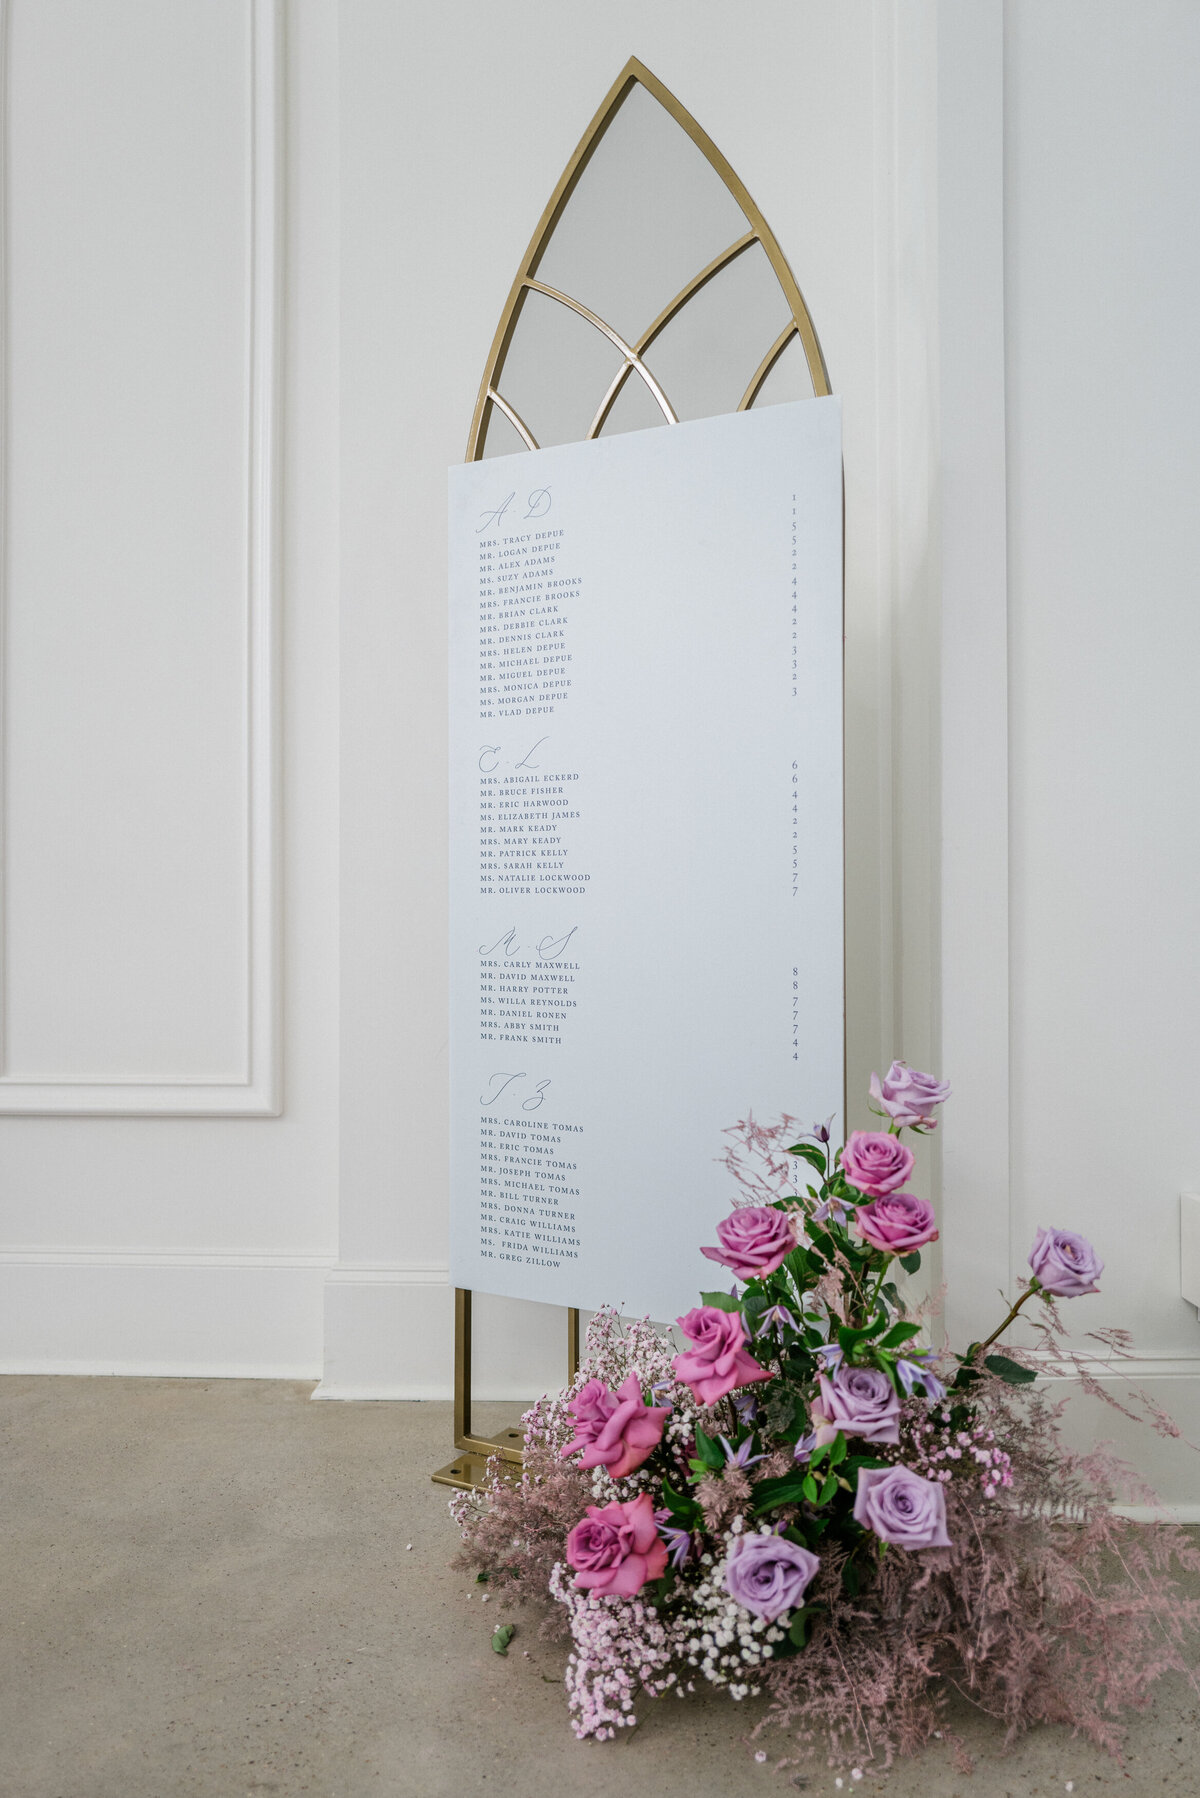 A - D
MRS. TRACY DEPUE 1
MR. LOGAN DEPUE 1
MR. ALEX ADAMS 5
MS. SUZY ADAMS 5
MR. BENJAMIN BROOKS 2
MRS. FRANCIE BROOKS 2
MR. BRIAN CLARK 4
MRS. DEBBIE CLARK 4
MR. DENNIS CLARK 4
MRS. HELEN DEPUE 2
MR. MICHAEL DEPUE 2
MR. MIGUEL DEPUE 3
MRS. MONICA DEPUE 3
MS. MORGAN DEPUE 2
MR. VLAD DEPUE 3
E - L
MRS. ABIGAIL ECKERD 6
MR. BRUCE FISHER 6
MR. ERIC HARWOOD 4
MS. ELIZABETH JAMES 4
MR. MARK KEADY 2
MRS. MARY KEADY 2
MR. PATRICK KELLY 5
MRS. SARAH KELLY 5
MS. NATALIE LOCKWOOD 7
MR. OLIVER LOCKWOOD 7
M - S
MRS. CARLY MAXWELL 8
MR. DAVID MAXWELL 8
MR. HARRY POTTER 7
MS. WILLA REYNOLDS 7
MR. DANIEL RONEN 7
MRS. ABBY SMITH 4
MR. FRANK SMITH 4
T - Z
MRS. CAROLINE TOMAS 3
MR. DAVID TOMAS 3
MR. ERIC TOMAS
MRS. FRANCIE TOMAS
MR. JOSEPH TOMAS
MRS. MICHAEL TOMAS
MR. BILL TURNER
MRS. DONNA TURNER
MR. CRAIG WILLIAMS
MRS. KATIE WILLIAMS
MS. FRIDA WILLIAMS
MR. GREG ZILLOW